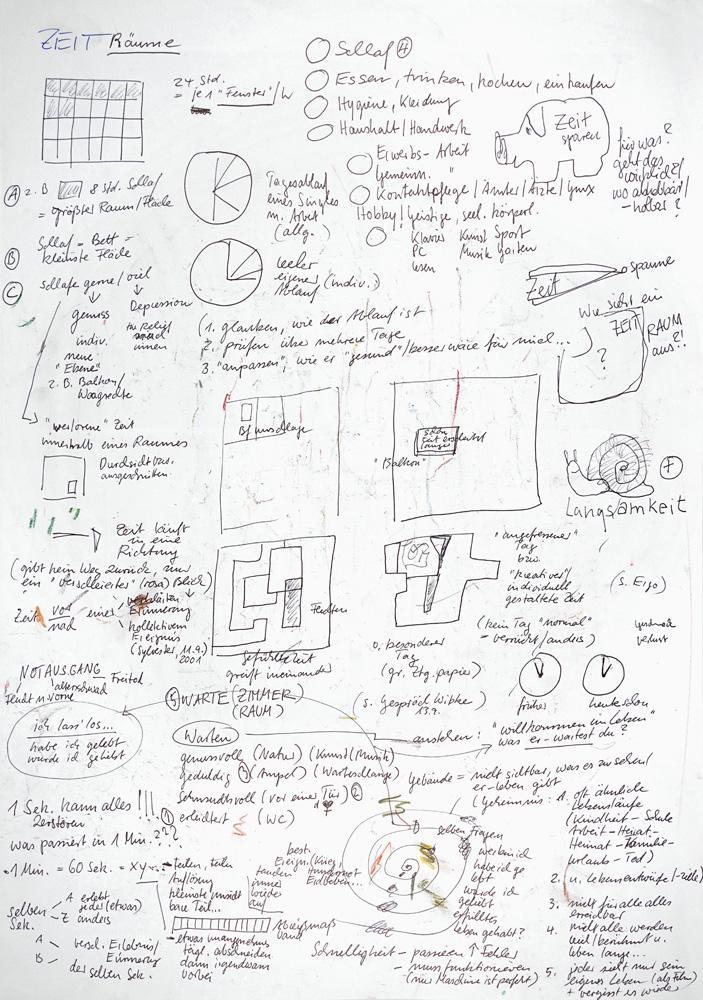 ZEIT Räume
24 Std.
= je 1 "Fenster"/
Schlaf 4
Essen, trinken, kochen, einkaufen
Hygiene, Kleidung
Haushalt/Handwerk
Erwerbs-Arbeit
Gemeinn. "
Kontaktpflege/Ämter/Ärzte/
Hobby/geistige, seel. körperl.
Klavier Kunst Sport
PC Musik Garten
Lesen
Zeit
sparen
für was?
geht das
wirklich?/
wo abhebbar/
-holbar?
A z. B. 8 Std. Schlaf
= größter Raum/Fläche
B Schlaf = Bett =
kleinste Fläche
C schlafe gerne/viel
genuss Depression
indiv.
neue
"Ebene"
z. B. Balkon/
Tagesablauf
eines Singles
m. Arbeit
(allg.)
leeler
eigener
Ablauf (indiv.)
(1. glauben, wie der Ablauf ist
2. prüfen über mehrere Tage
3. "anpassen", wie er "gesund"/besser wäre für mich...
Zeit spanne
Wie sieht ein
ZEIT
RAUM
aus?!
?
"verlorene" Zeit
innerhalb eines Raumes
ausgeschnitten
"Balkon"
7
Langsamkeit
Zeit läuft
in eine
Richtung
(gibt kein Weg zurück, nur
ein "verschleierter" (rosa) Blick)
Zeit vor
nach einer
Erinnerung
kollektivem
Ereignis
(Sylvester, 11.9.)
2001
gefühlte Zeit
greift ineinander
"angefressener"
Tag
bzw.
"kreativer"
individuell
gestaltete Zeit
(s. Ergo)
(kein Tag "normal"
- verrückt/anders)
o. besonderer
Tag
(gr. Ztg.papier)
(s. Gespräch Wibke)
13.9.
früher heute schon
NOTAUSGANG
Freitod
ich lass' los...
habe ich gelebt
wurde ich geliebt
5 WARTE (ZIMMER)
(RAUM)
Warten
genussvoll (Natur) (Kunst/Musik)
geduldig 3 (Ampel) (Warteschlange)
sehnsuchtsvoll (vor einer Tür) 2
1 erleichtert (WC)
anstehen: "willkommen im Leben"
was er-wartest du?
Gebäude = nicht sichtbar, was es zu sehen/
er-leben gibt
(Geheimnis: 1. oft ähnliche
Lebensläufe
(Kindheit - Schule
Arbeit - Heirat -
Heimat - Familie -
Urlaub - Tod)
2. u. Lebensentwürfe (-ziele)
3. nicht für alle alles
erreichbar
4. nicht alle werden
reich/berühmt u.
leben lange...
5. jeder sieht nur sein
eigenes Leben (als Film)
+ vergisst es wieder
1 Sek. kann alles !!!
zerstören
was passiert in 1 Min.???
1 Min. = 60 Sek. = xy
teilen, teilen
Auflösung
kleinste unsicht
bare Teil...
tauchen
immer
wieder
auf
best.
Ereign. (Krieg,
Erdbeben...
selben
Sek.
A erlebt
jeder (etwas)
Z anders
A - versch. Erlebnis/
B - Erinnerung
der selben Sek.
- etwas unangenehmes
tägl. abschneiden
dann irgendwann
vorbei
selben Fragen
wer bin ich
habe ich ge
lebt
wurde ich
geliebt
erfülltes
Leben gehabt?
Schnelligkeit - passieren ↑ Fehler
- muss funktionieren
(nur Maschine ist perfekt)